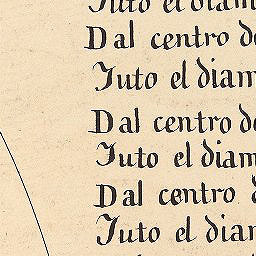 Juto el diam
Dal centro de
Juto el diam
Dal centro de
Juto el diam
Dal centro d
Juto el diam